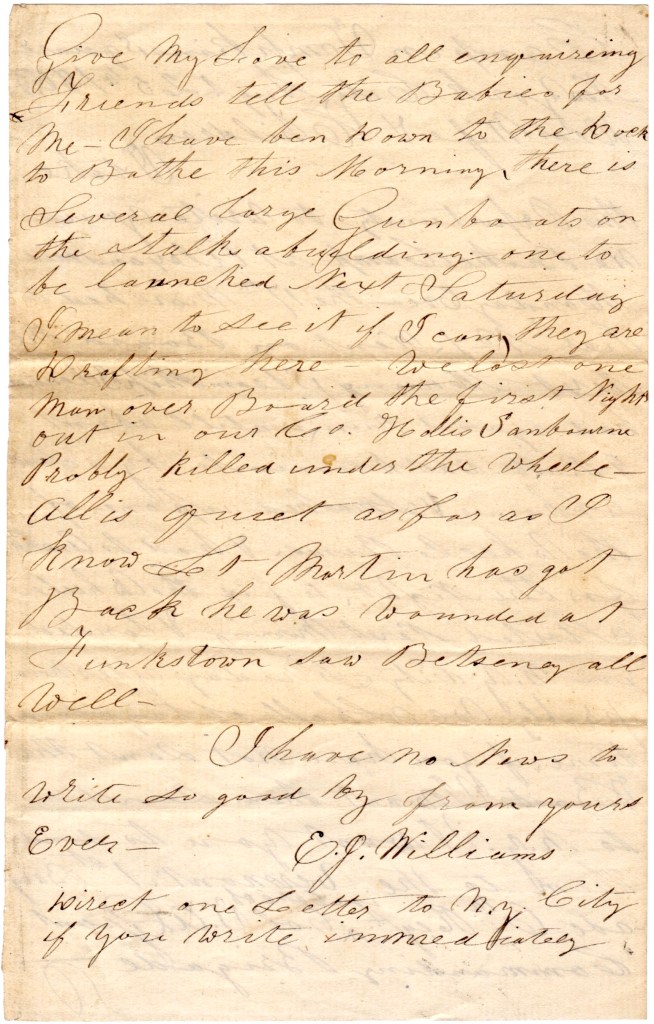 Give My Love to all enquireing
Friends tell the Babies for
Me - I have ben Down to the Dock
to Bathe this Morning, there is
Several large Gunboats on
the Stalks abuilding one to
be launched Next Saturday
I mean to see it if I can, they are
Drafting here - We lost one
Man over Board the first Night
out in our Co. Hollis Sanbourne
Probly Killed under the wheele -
All is quiet as far as I
Know Lt Martin has got
Back he was wounded at
Funkstown saw Betseney all
Well -
I have no News to
Write so good by from yours
Ever - E. J. Williams
Direct one Letter to N.y. City
if you write immediately